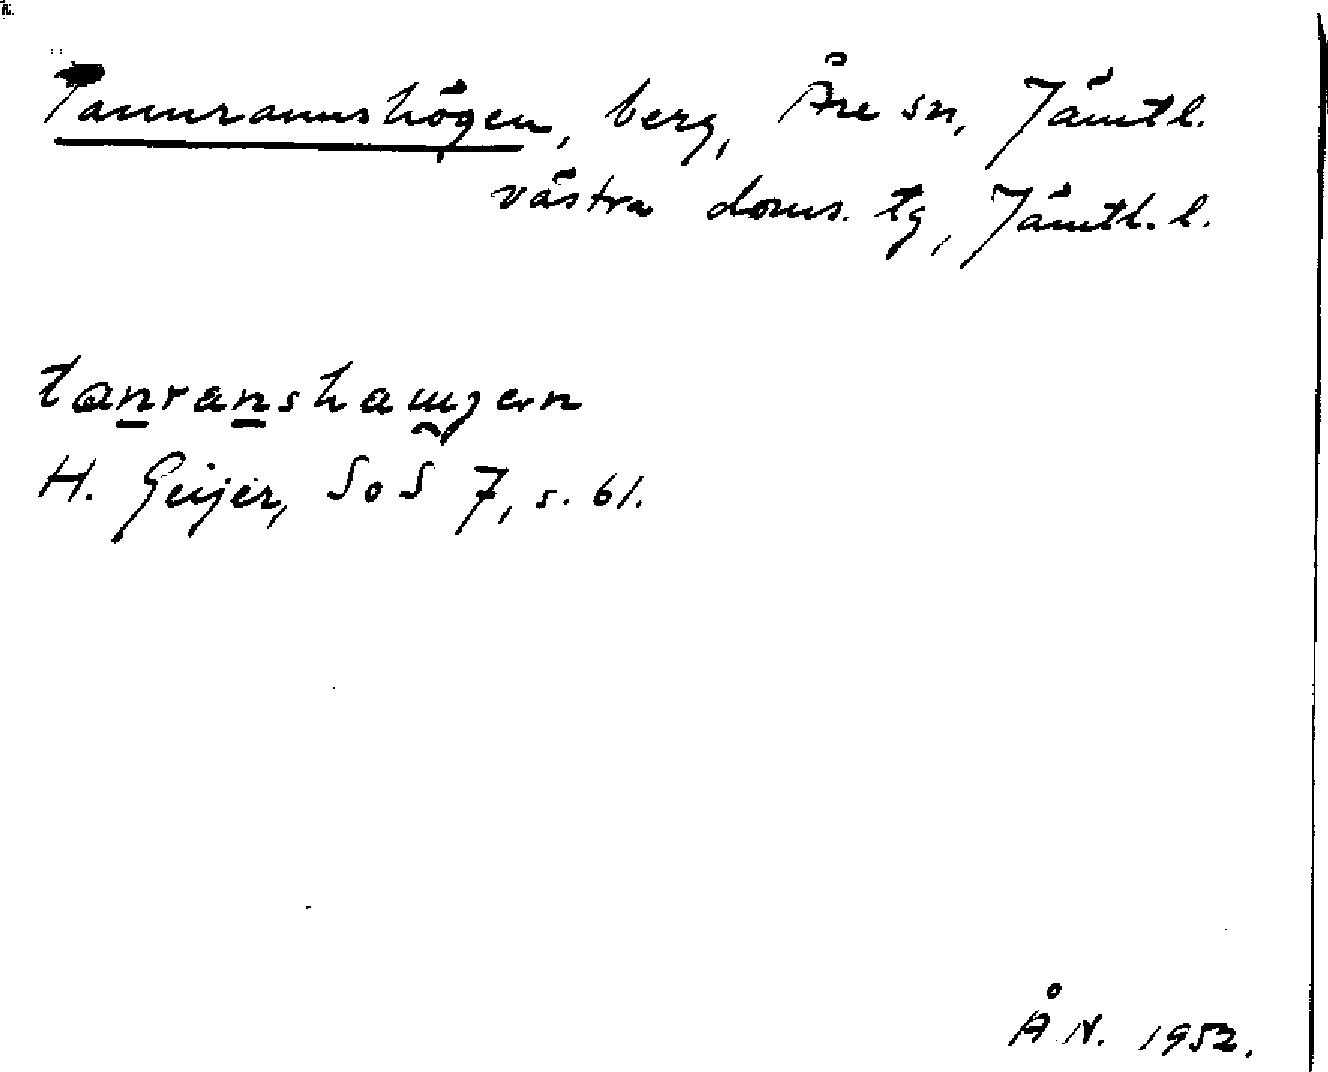 Tannrannshögen, berg, Åre sn, Jämtl.
västra doms. tg, Jämtl. l.
H. Geijer, SoS 7, s. 61.
Å N. 1952.